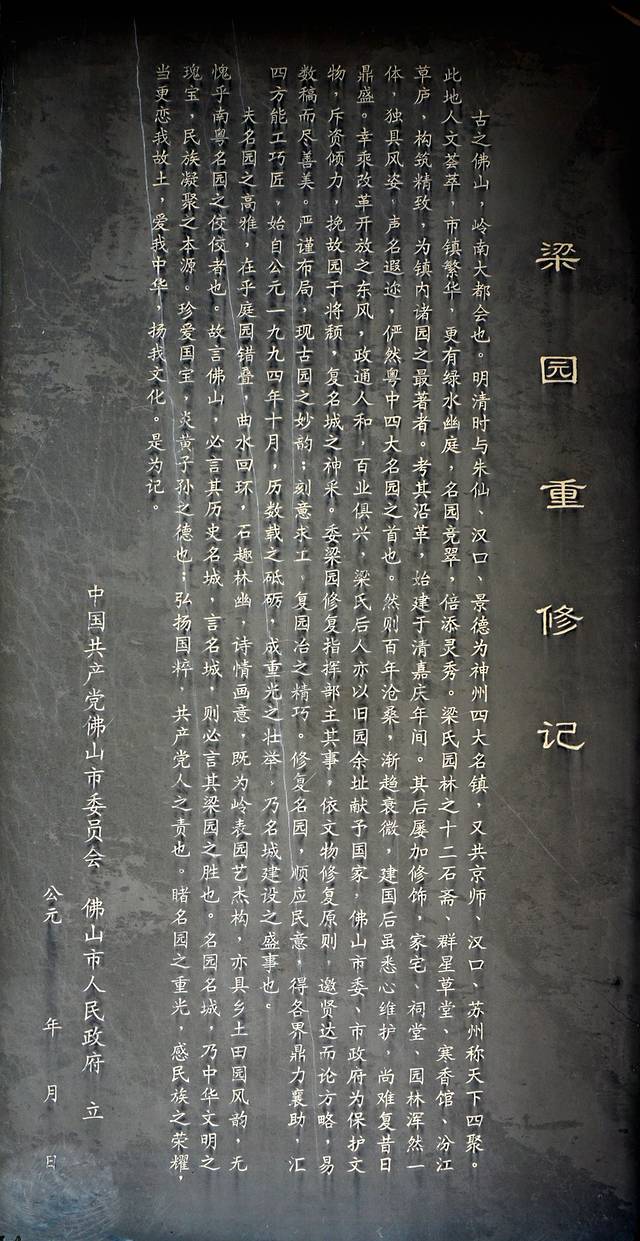 梁园重修记
古之佛山，岭南大都会也。明清时与朱仙、汉口、景德为神州四大名镇，又共京师、汉口、苏州称天下四聚。
此地人文荟萃，市镇繁华，更有绿水幽庭，名园竞翠，倍添灵秀。梁氏园林之十二石斋、群星草堂、寒香馆、汾江
草庐，构筑精致，为镇内诸园之最著者。考其沿革，始建于清嘉庆年间。其后屡加修饰，家宅、祠堂、园林浑然一
体，独具风姿，声名遐迩，俨然粤中四大名园之首也。然则百年沧桑，渐趋衰微，建国后虽悉心维护，尚难复昔日
鼎盛。幸乘改革开放之东风，政通人和，百业俱兴，梁氏后人亦以旧园余址献予国家，佛山市委、市政府为保护文
物，斥资倾力，挽故园于将颓，复名城之神采。委梁园修复指挥部主其事，依文物修复原则，邀贤达而论方略，易
数稿而尽善美。严谨布局，现古园之妙韵；刻意求工，复园冶之精巧。修复名园，顺应民意，得各界鼎力襄助，汇
四方能工巧匠，始自公元一九九四年十月，历数载之砥砺，成重光之壮举，乃名城建设之盛事也。
夫名园之高雅，在乎庭园错叠，曲水回环，石趣林幽，诗情画意，既为岭表园艺杰构，亦具乡土田园风韵，无
愧乎南粤名园之佼佼者也。故言佛山，必言其历史名城，言名城，则必言其梁园之胜也。名园名城，乃中华文明之
瑰宝，民族凝聚之本源。珍爱国宝，炎黄子孙之德也；弘扬国粹，共产党人之责也。睹名园之重光，感民族之荣耀，
当更恋我故土，爱我中华，扬我文化。是为记。
中国共产党佛山市委员会 佛山市人民政府 立
公元 年 月 日